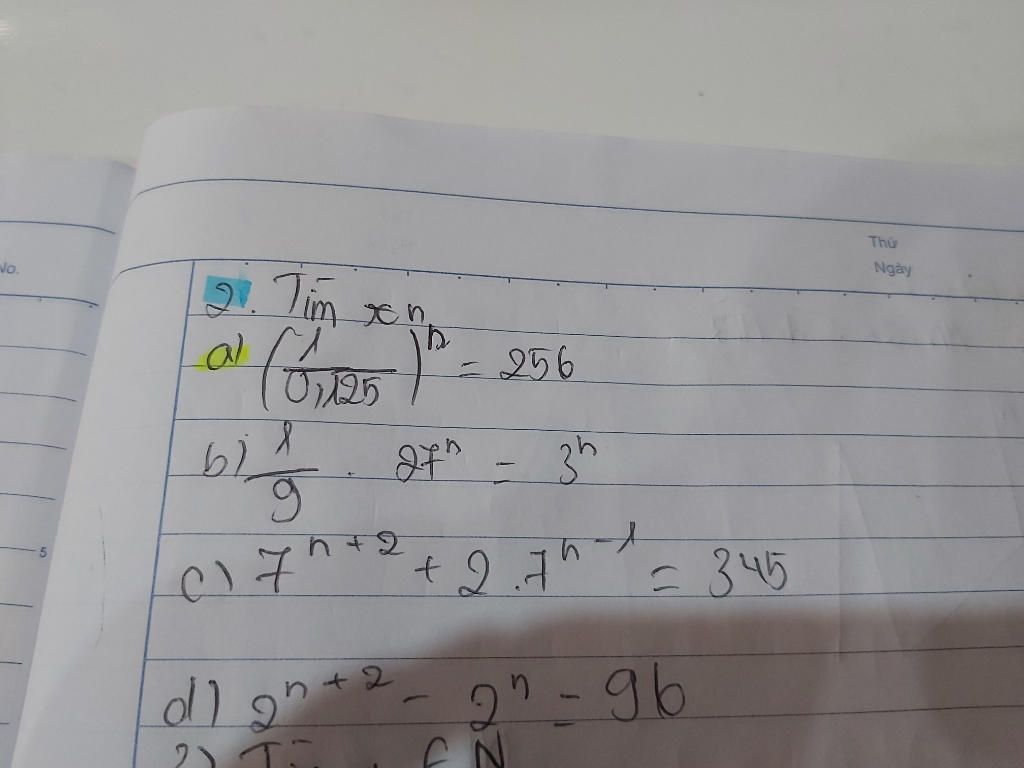 Vo.
Thứ
Ngày
2. Tìm x n
a) (1/0,125)^n = 256
b) 1/9 . 27^n = 3^n
5
c) 7^{n+2} + 2.7^{n-1} = 345
d) 2^{n+2} - 2^n = 96